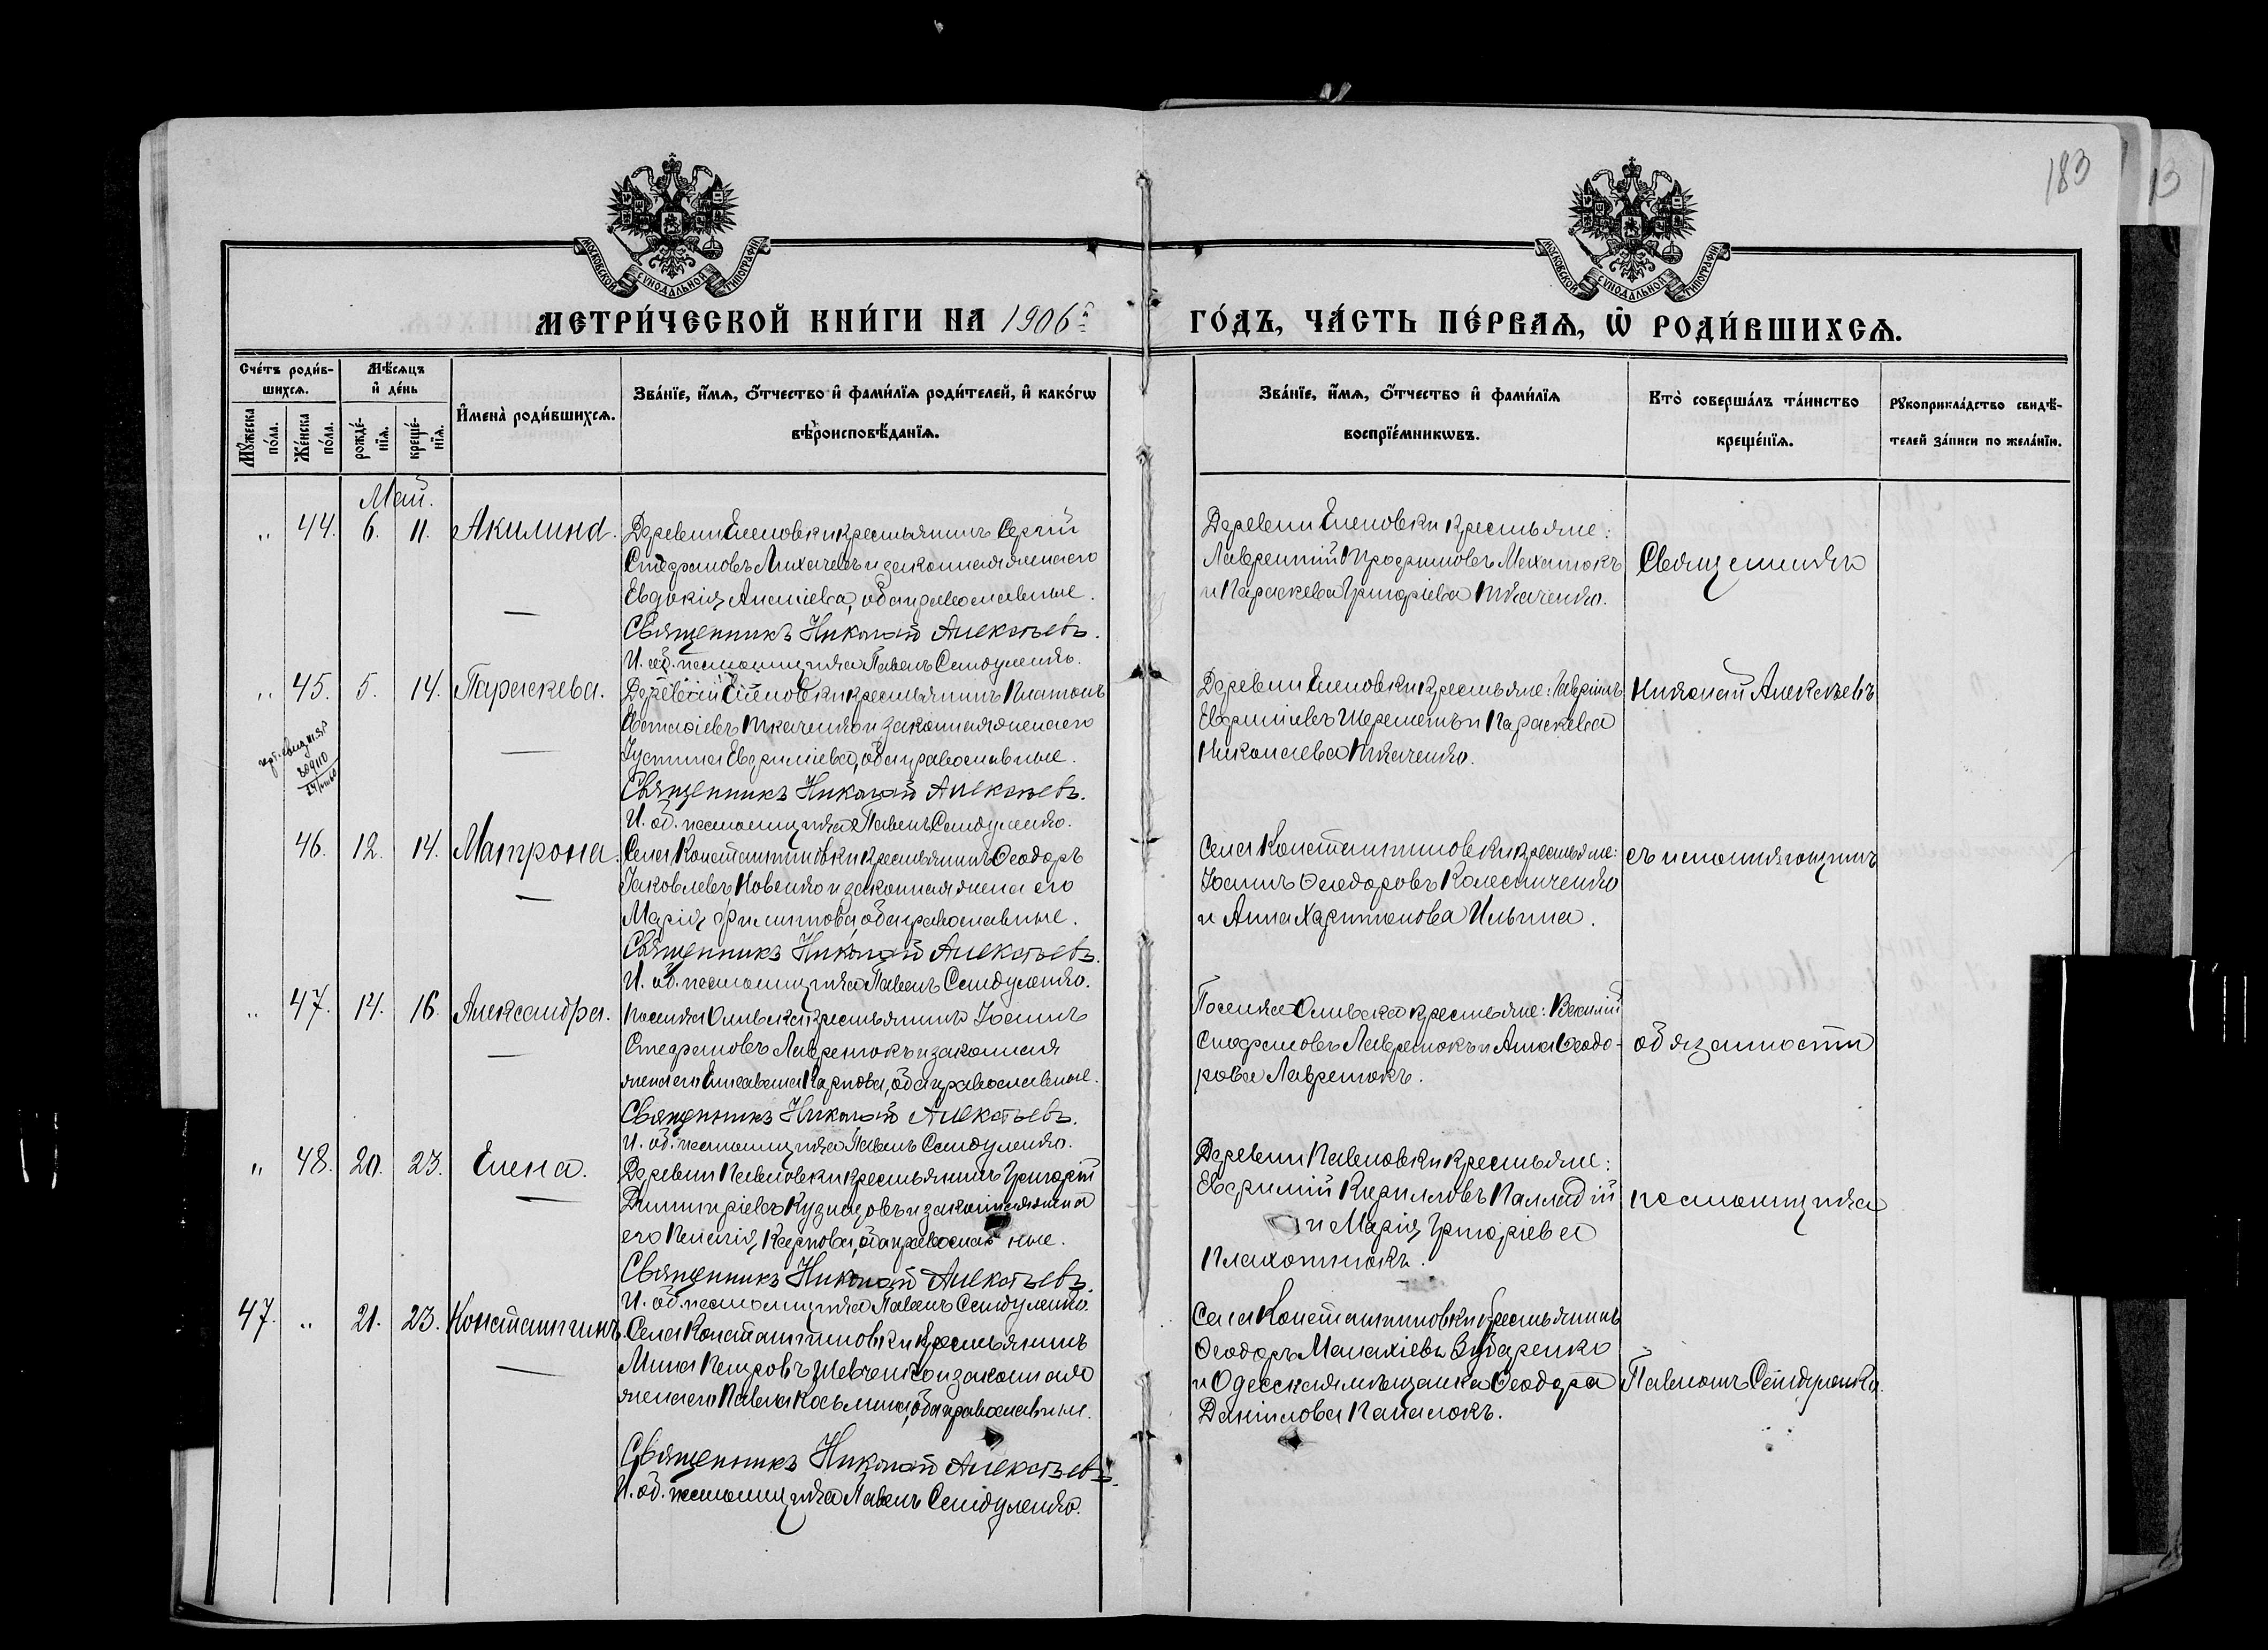 183
13
МОСКОВСКОЙ СѴНОДАЛЬНОЙ ТИПОГРАФІИ
МОСКОВСКОЙ СѴНОДАЛЬНОЙ ТИПОГРАФІИ
МЕТРИ́ЧЕСКОЙ КНИ́ГИ НА 1906 г.
ГО́ДЪ, ЧА́СТЬ ПЕ́РВАѦ, Ѽ РОДИ́ВШИХСѦ.
Сче́тъ роди́в-
шихсѧ.
Мꙋ́жеска по́ла.
Же́нска по́ла.
Мѣ́сѧцъ
и҆ де́нь
рожде́-
нїѧ.
креще́-
нїѧ.
И҆мена̀ роди́вшихсѧ.
Зва́нїе, и҆́мѧ, ѻ҆́тчество и҆ фами́лїѧ роди́телей, и҆ како́гѡ
вѣ́роисповѣ́данїѧ.
Зва́нїе, и҆́мѧ, ѻ҆́тчество и҆ фами́лїѧ
воспрїе́мникѡвъ.
Кто̀ соверша́лъ та́инство
креще́нїѧ.
Рꙋкоприкла́дство свидѣ́-
телей за́писи по жела́нїю.
Май.
" 44. 6. 11. Акилина.
Деревни Еленовки крестьянинъ Сергій
Стефановъ Лихачевъ и законная жена его
Евдокія Ананіева, оба православные.
Священникъ Николай Алексѣевъ.
И. об. псаломщика Павелъ Сендуленко.
Деревни Еленовки крестьяне:
Лаврентій Трофимовъ
и Параскева Григоріева Ткаченко.
Священникъ
" 45. 5. 14. Параскева.
309110
Деревни Еленовки крестьянинъ Платонъ
Евстафіевъ Ткаченко и законная жена его
Іустина Евфиміева, оба православные.
Священникъ Николай Алексѣевъ.
И. об. псаломщика Павелъ Сендуленко.
Деревни Еленовки крестьяне: Гавріилъ
Евфиміевъ Шереметъ и Параскева
Николаева Ткаченко.
Николай Алексѣевъ
46. 12. 14. Матрона.
Села Константиновки крестьянинъ Ѳеодоръ
Іаковлевъ Новенко и законная жена его
Марія Филиппова, оба православные.
Священникъ Николай Алексѣевъ.
И. об. псаломщика Павелъ Сендуленко.
Села Константиновки крестьяне:
Іоаннъ Ѳеодоровъ Колесниченко
и Анна Харитонова Ильина.
съ исполняющимъ
" 47. 14. 16. Александра.
Поселка крестьянинъ Іоаннъ
Стефановъ Лавренюкъ и законная
жена его Елисавета Карпова, оба православные.
Священникъ Николай Алексѣевъ.
И. об. псаломщика Павелъ Сендуленко.
Поселка крестьяне: Василій
Стефановъ Лавренюкъ и Анна Ѳеодо-
рова Лавренюкъ.
обязанности
" 48. 20. 23. Елена.
Деревни Павловки крестьянинъ Григорій
Димитріевъ Кузнецовъ и законная жена
его Пелагія Карпова, оба православные.
Священникъ Николай Алексѣевъ.
И. об. псаломщика Павелъ Сендуленко.
Деревни Павловки крестьяне:
Евфимій Кирилловъ Палладій
и Марія Григоріева
Плахотнюкъ.
псаломщика
47. " 21. 23. Константинъ.
Села Константиновки крестьянинъ
Мина Петровъ Шевченко и законная
жена его Павла Косьмина, оба православные.
Священникъ Николай Алексѣевъ.
И. об. псаломщика Павелъ Сендуленко.
Села Константиновки крестьянинъ
Ѳеодоръ Малахіевъ Зубаренко
и Одесская мѣщанка Ѳеодора
Даніилова Панасюкъ.
Павломъ Сендуленко.